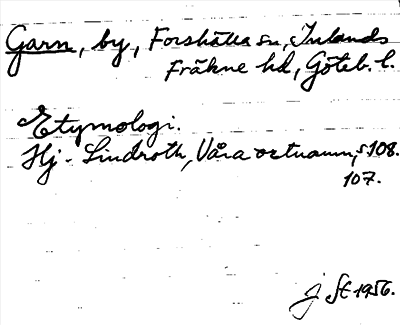 Garn, by, Forshälla sn, Inlands
Fräkne hd, Göteb. l.
Etymologi.
Hj. Lindroth, Våra ortnamn, s. 108.
107.
St 1956.